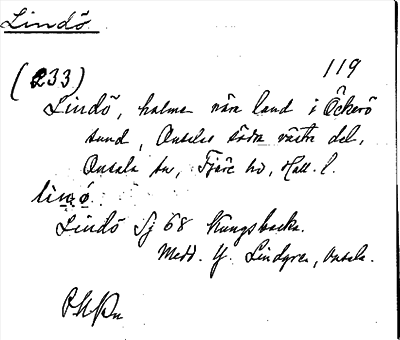 Lindö
119
(233)
Lindö, holme nära land i Öckerö
sund, Onsalas södra västra del,
Onsala sn, Fjäre hd, Hall. l.
linö.
Lindö Sj 68 Kungsbacka.
Medd. G. Lindgren, Onsala.